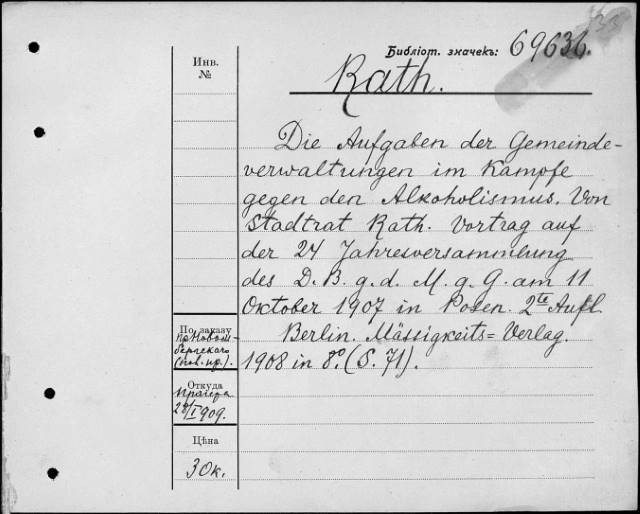 Библіот. значекъ: 69636.
Rath.
Инв.
№
Die Aufgaben der Gemeinde-
verwaltungen im Kampfe
gegen den Alkoholismus. Von
Stadtrat Rath. Vortrag auf
der 24 Jahresversammlung
des D. B. g. d. M. g. G. am 11
Oktober 1907 in Posen. 2te Aufl.
Berlin. Mässigkeits=Verlag.
1908 in 8º. (S. 71).
По заказу
Откуда
28/I 1909.
Цѣна
30к.